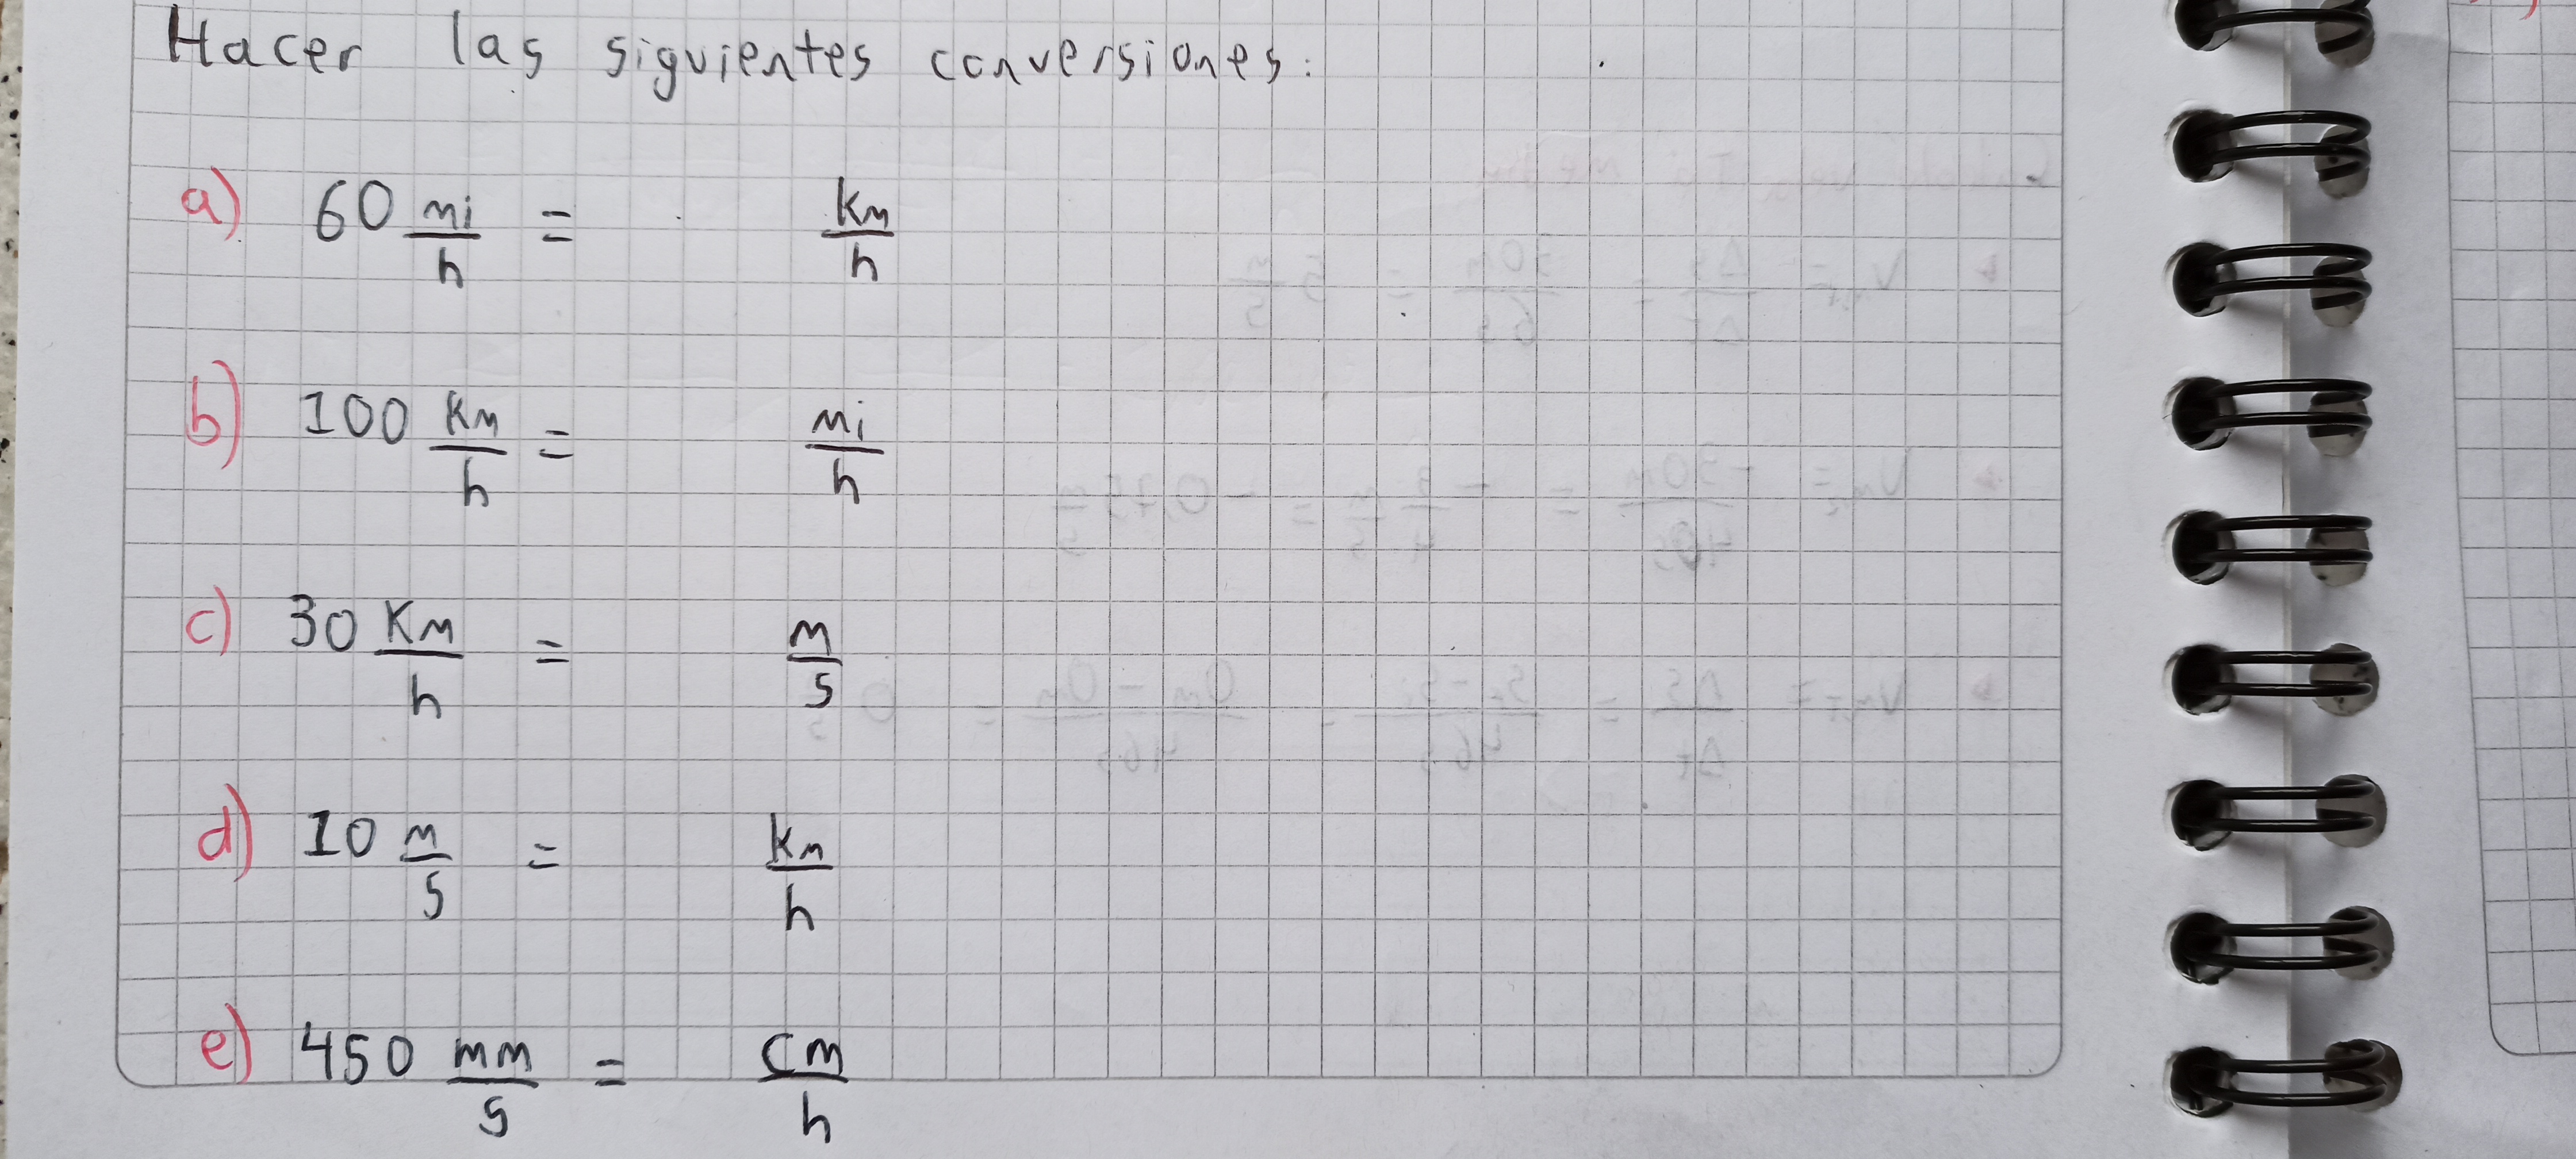 Hacer las siguientes conversiones:
a) 60 mi/h = km/h
b) 100 km/h = mi/h
c) 30 Km/h = m/s
d) 10 m/s = km/h
e) 450 mm/s = cm/h